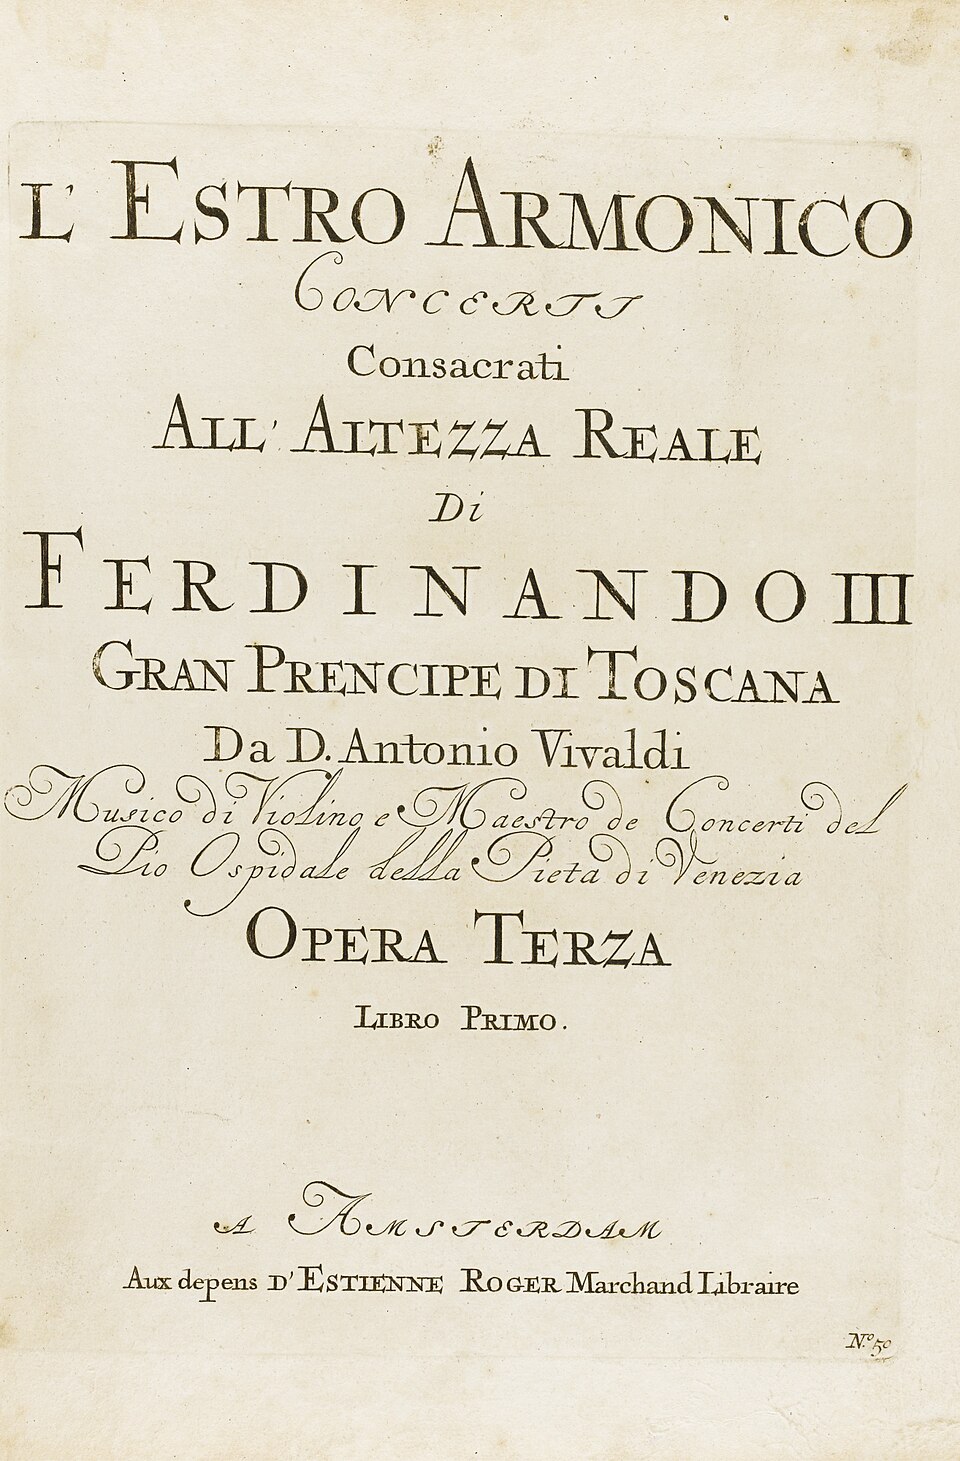 L'ESTRO ARMONICO
CONCERTI
Consacrati
ALL' ALTEZZA REALE
Di
FERDINANDO III
GRAN PRENCIPE DI TOSCANA
Da D. Antonio Vivaldi
Musico di Violino e Maestro de Concerti del
Pio Ospidale della Pieta di Venezia
OPERA TERZA
LIBRO PRIMO.
A AMSTERDAM
Aux depens D'ESTIENNE ROGER Marchand Libraire
N.º 50